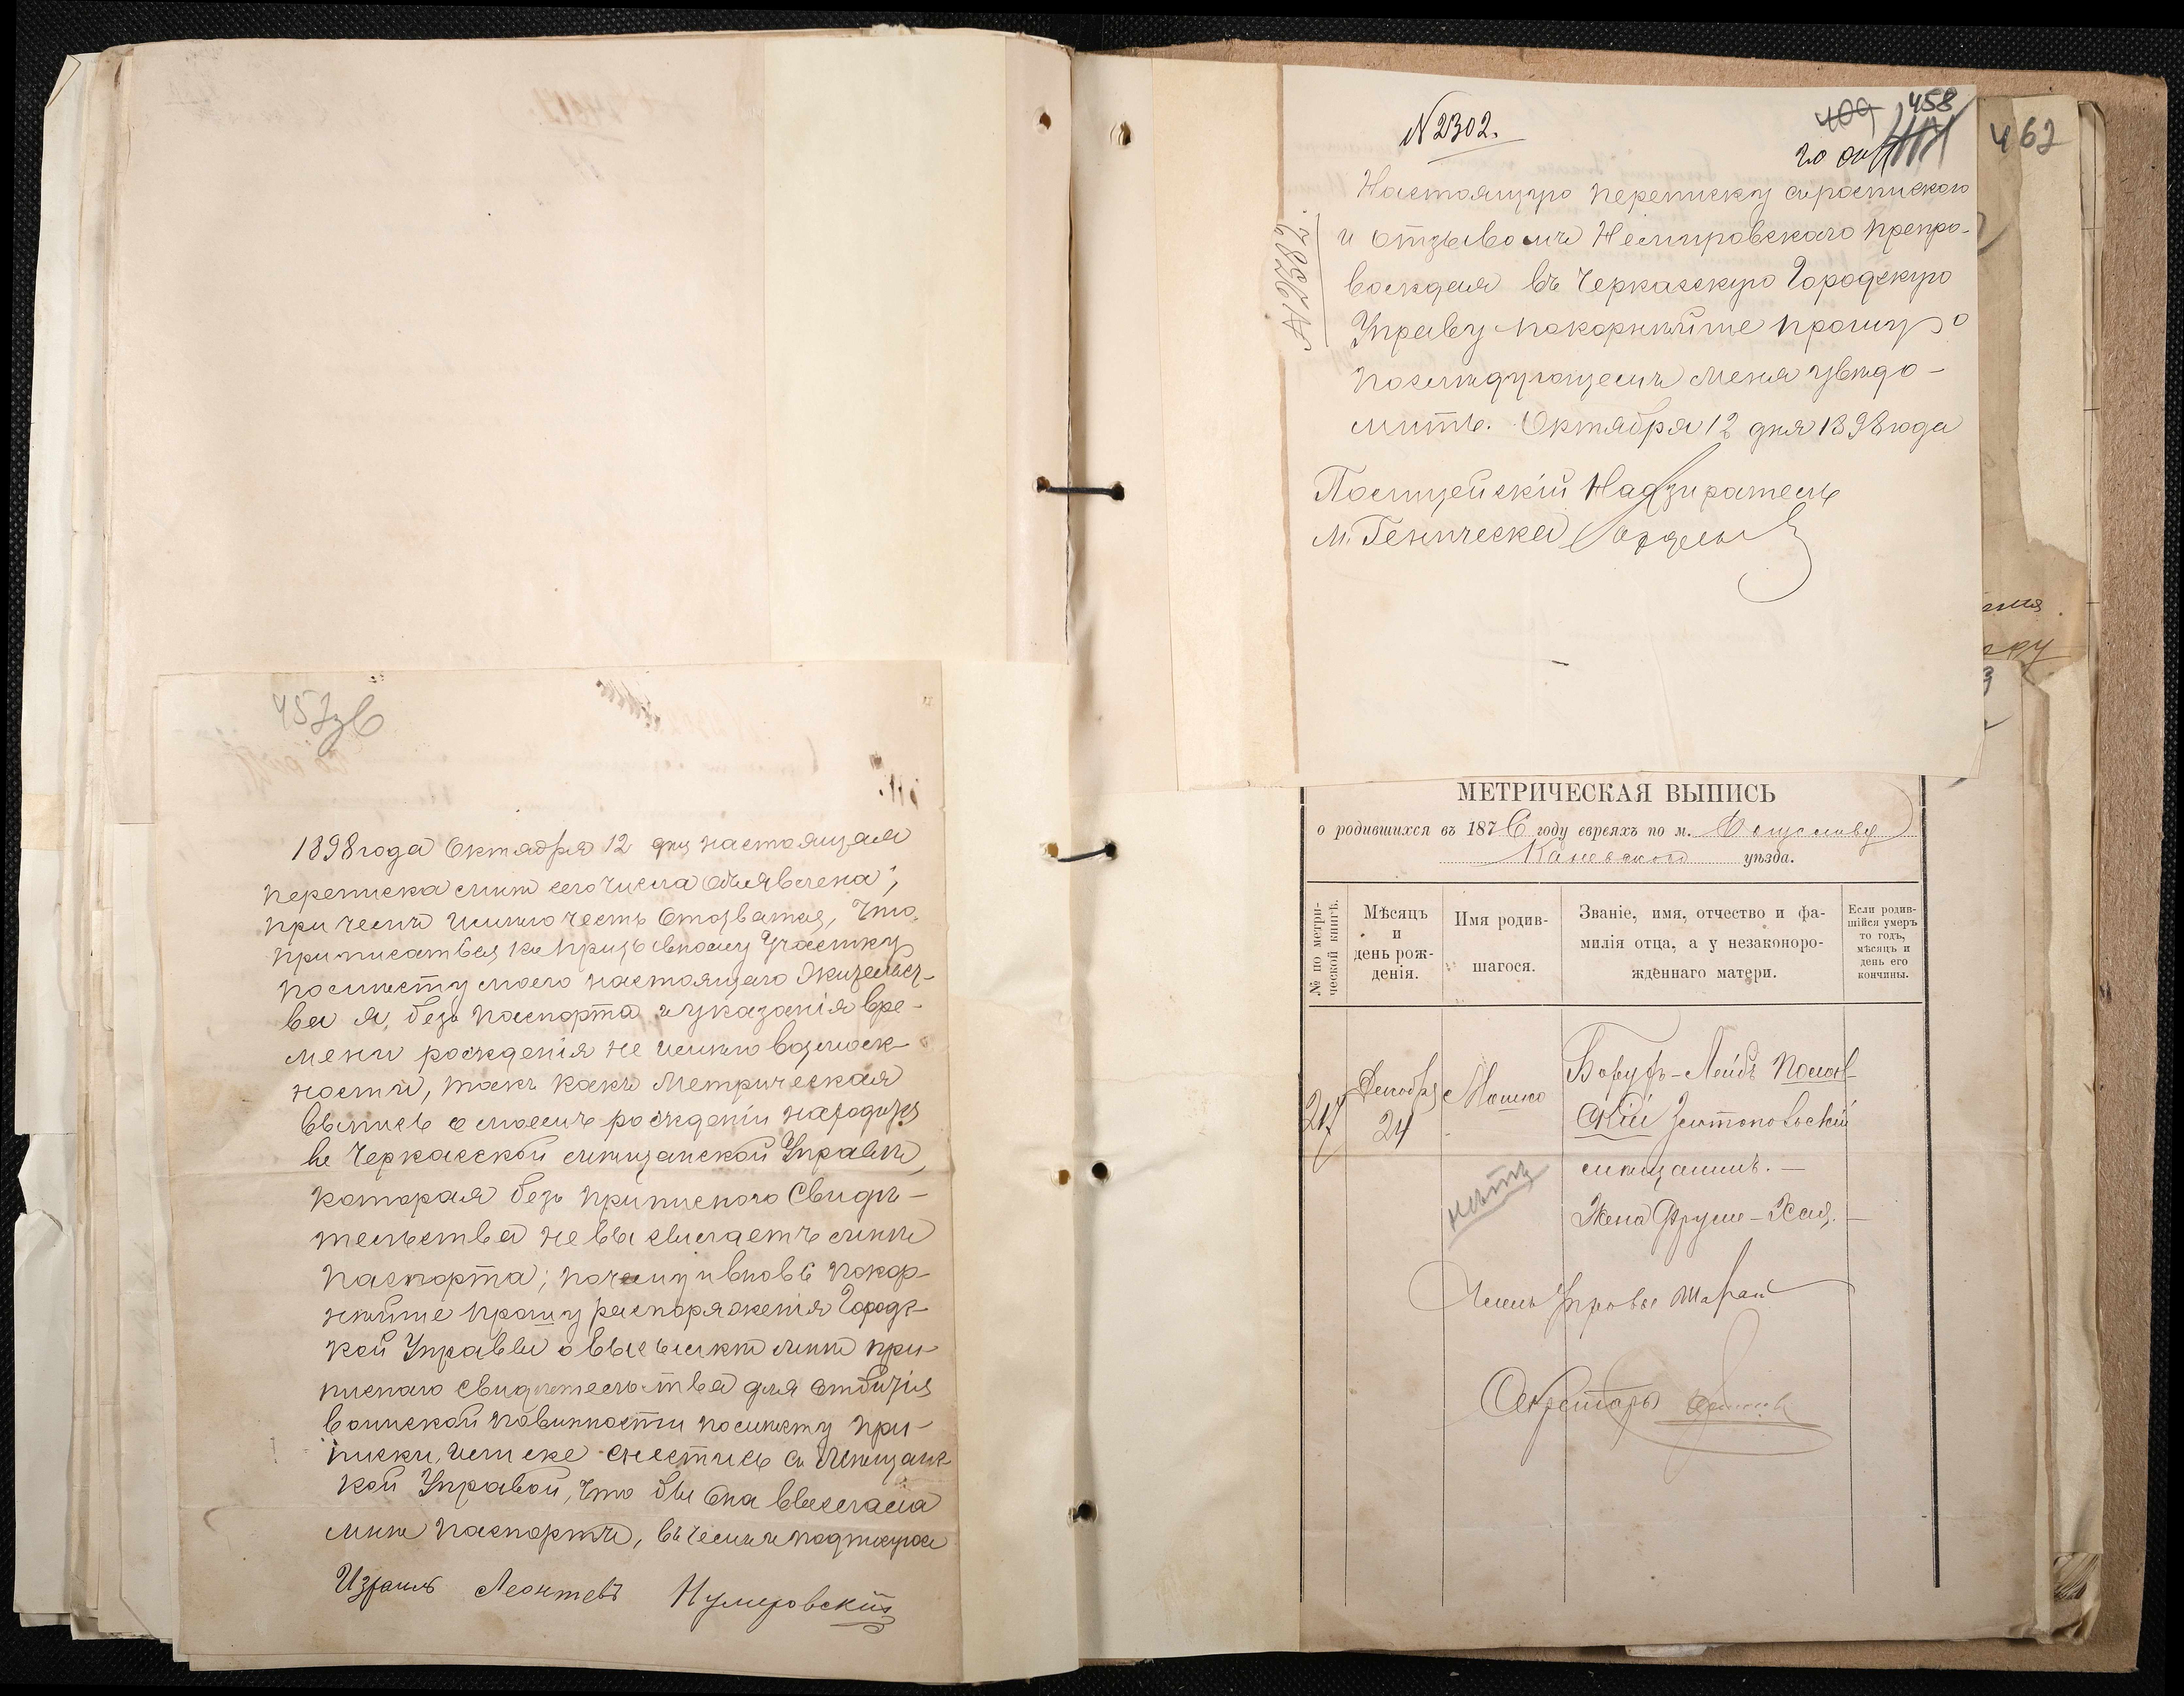 457 зв
1898 года Октября 12 дня настоящая
переписка мнѣ сего числа объявлена,
при чемъ имѣю честь отозватся, что
приписаться къ призывному участку
по мѣсту моего настоящаго жительст-
ва я, безъ паспорта и указанія вре-
мени рожденія не имѣю возмож-
ности, такъ какъ метрическая
выпись о моемъ рожденіи находится
въ Черкасской мѣщанской Управѣ,
которая безъ приписного свидѣ-
тельства не высылаетъ мнѣ
паспорта; почему и вновь покор-
нѣйше прошу распоряженія Городс-
кой Управы о высылкѣ мнѣ при-
писнаго свидѣтельства для отбытія
воинской повинности по мѣсту при-
писки, или же снестись съ Мѣщанс-
кой Управой, что бы она выслала
мнѣ паспортъ, въ чемъ и подписуюсь
Израиль Леонтевъ Нумеровскій
N 2302.
409 458
20 ок
462
Настоящую переписку съ роспискою
и отзывомъ Немировскаго препро-
вождая въ Черкасскую Городскую
Управу покорнѣйше прошу о
послѣдующемъ меня увѣдо-
мить. Октября 12 дня 1898 года
Полицейскій Надзиратель
м. Геническа
МЕТРИЧЕСКАЯ ВЫПИСЬ
о родившихся въ 1876 году евреяхъ по м. Богуславу
Каневскаго уѣзда.
№ по метри-
ческой книгѣ.
Мѣсяцъ
и
день рож-
денія.
Имя родив-
шагося.
Званіе, имя, отчество и фа-
милія отца, а у незаконоро-
жденнаго матери.
Если родив-
шійся умеръ
то годъ,
мѣсяцъ и
день его
кончины.
217
Декабря
24
Мошко
Борухъ-Лейбъ Полон-
скій Золотоповскій
мѣщанинъ. —
Жена Фрума-Хая. —
нѣтъ
Членъ Управы
Секретарь